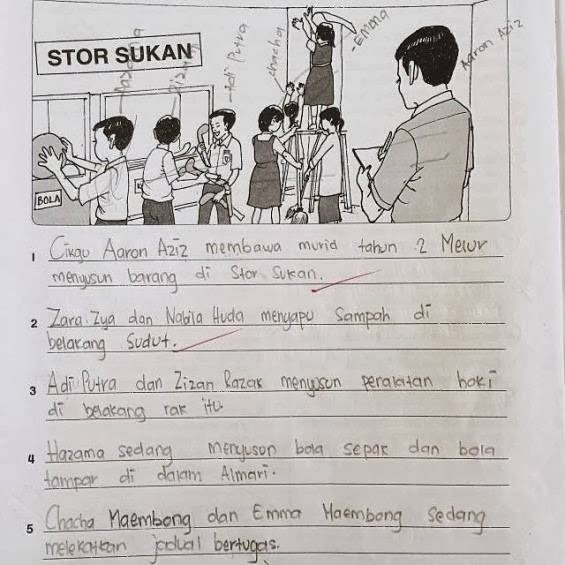 STOR SUKAN
Adi Putra
chacha
-Emma
Aaron Aziz
BOLA
1 Cikgu Aaron Aziz membawa murid tahun 2 Melur
menyusun barang di Stor Sukan.
2 Zara Zya dan Nabila Huda menyapu Sampah di
belakang Sudut.
3 Adi Putra dan Zizan Razak menyusun peralatan hoki
di belakang rak itu.
4 Hazama sedang menyusun bola sepak dan bola
tampar di dalam Almari.
5 Chacha Maembong dan Emma Maembong Sedang
melekatkan jadual bertugas.